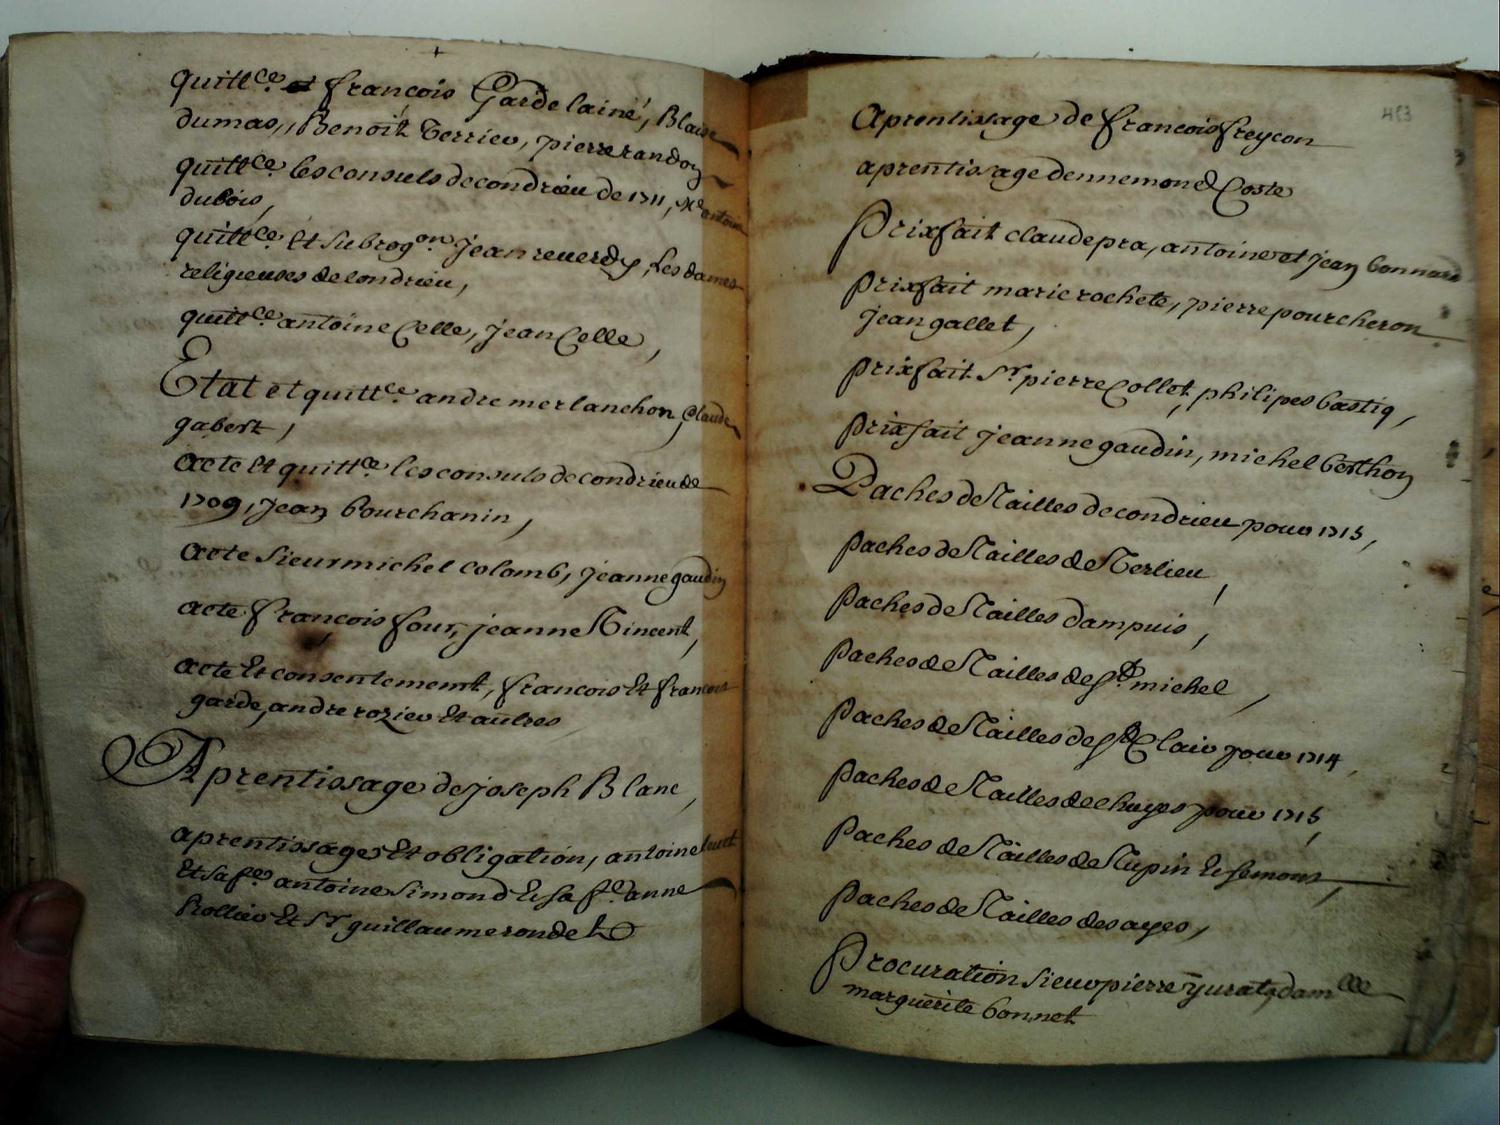 quitt.ce et françois Garde lainé, Blaise
dumas,, Benoit Terrieu, pierre randon
quitt.ce les consuls de condrieu de 1711, Me antoine
dubois,
quitt.ce Et subrog.on Jean reuerdy, Les dames
religieuses de condrieu,
quitt.ce antoine Celle, Jean Celle,
Etat et quitt.ce andre merlanchon, Claude
gabert,
acte Et quitt.ce les consuls de condrieu de
1709, Jean bourchanin,
acte sieur michel colomb, Jeanne gaudin
acte françois four, jeanne Vincent,
acte Et consentement, françois Et françois
garde, andre rozier Et autres
Aprentissage de joseph Blanc,
aprentissages Et obligation, antoine
Et sa fe. antoine Simond Et sa fe. anne
Et sr guillaume rondet
Aprentissage de francois freycon
aprentissage dennemond Coste
Prixfait claude pra, antoine et Jean bonnard
prixfait marie rochete, pierre pourcheron
Jean gallet,
prixfait Sr pierre Collet, philipes bastin,
prixfait Jeanne gaudin, michel berthon
Paches de Tailles de condrieu pour 1715,
paches de Tailles de Terlieu,
paches de Tailles dampuis,
paches de Tailles de St. michel,
paches de Tailles de St. Clair pour 1714,
paches de Tailles de chuyes pour 1715,
paches de Tailles de Tupin Et semons,
paches de Tailles des ayes,
Procuration sieur pierre yurat, damlle
marguerite bonnet
483